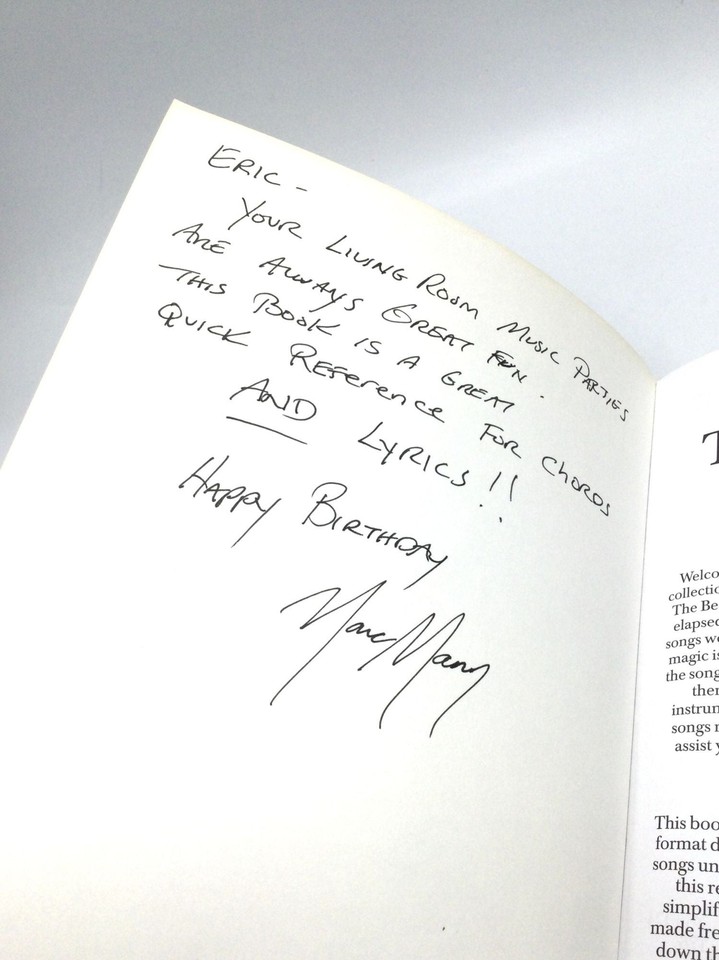 ERIC -
YOUR LIVING ROOM MUSIC PARTIES
ARE ALWAYS GREAT FUN.
THIS BOOK IS A GREAT
QUICK REFERENCE FOR CHORDS
AND LYRICS!!
HAPPY BIRTHDAY
Marc Mann
T
Welco
collectio
The Be
elapsed
songs we
magic is
the song
ther
instrun
songs r
assist y
This boo
format d
songs un
this re
simplif
made fre
down th